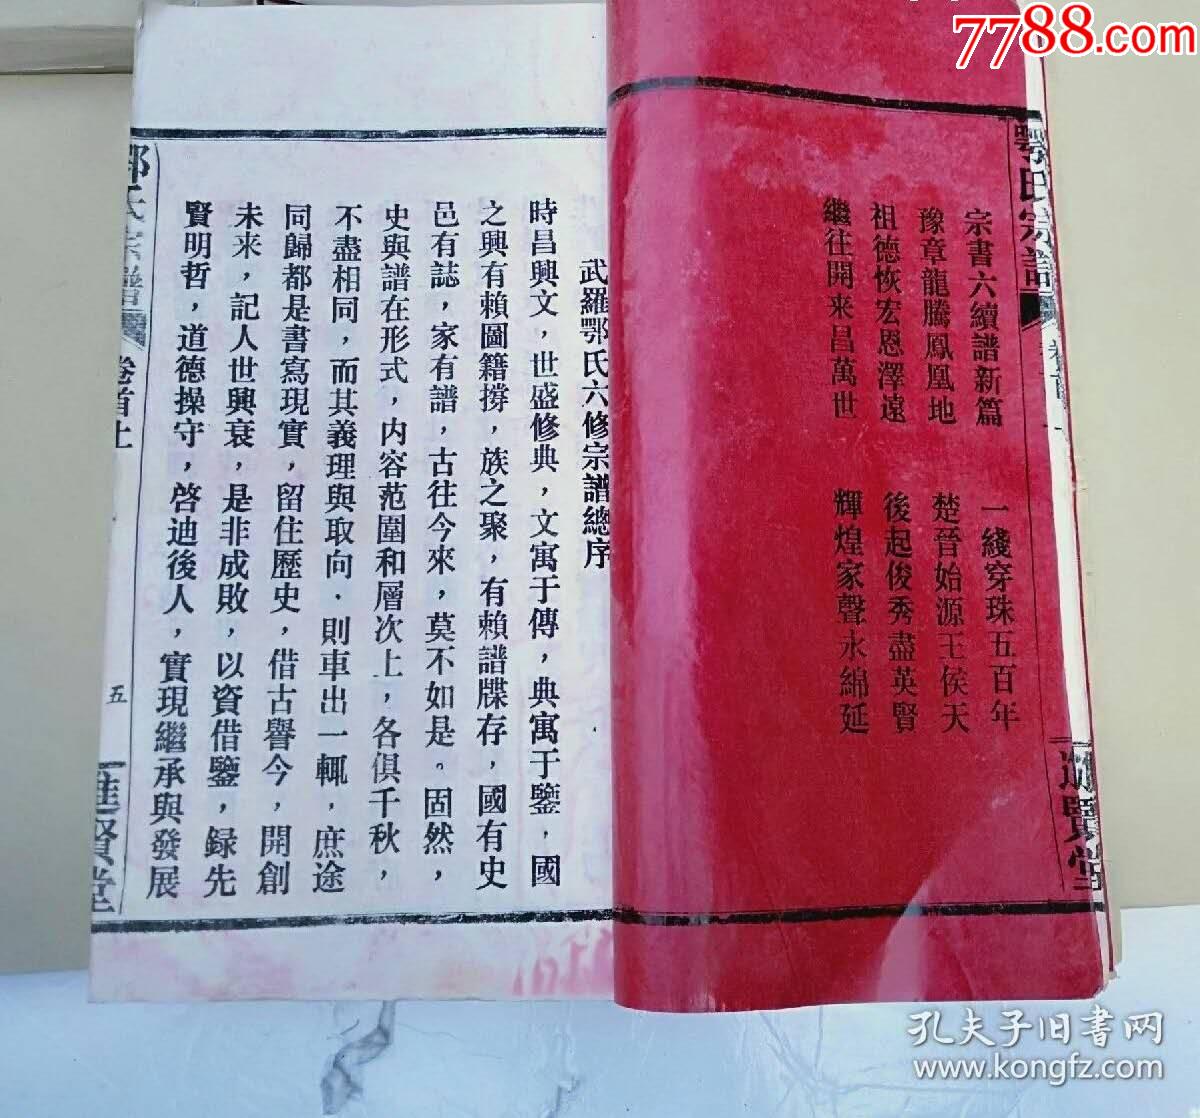 7788.com
鄂氏宗譜
進賢堂
宗書六續譜新篇　一綫穿珠五百年
豫章龍騰鳳凰地　楚晉始源王侯天
祖德恢宏恩澤遠　後起俊秀盡英賢
繼往開来昌萬世　輝煌家聲永綿延
武羅鄂氏六修宗譜總序
時昌興文，世盛修典，文寓于傳，典寓于鑒．國
之興有賴圖籍撐，族之聚，有賴譜牒存，國有史
邑有誌，家有譜，古往今來，莫不如是。固然，
史與譜在形式，内容范圍和層次上，各俱千秋，
不盡相同，而其義理與取向．則車出一輒，庶途
同歸都是書寫現實，留住歷史，借古譽今，開創
未来，記人世興衰，是非成敗，以資借鑒，録先
賢明哲，道德操守，啓迪後人，實現繼承與發展
鄂氏宗譜
卷首上
五
進賢堂
孔夫子旧书网
www.kongfz.com